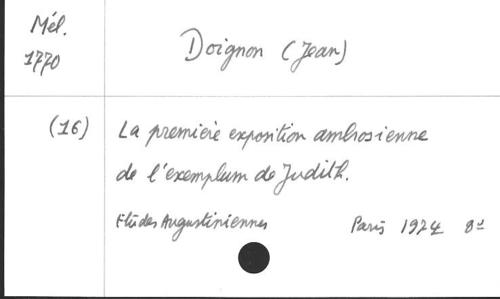 Mél.
1770
Doignon (Jean)
(16)
La première exposition ambrosienne
de l'exemplum de Judith.
Etudes Augustiniennes Paris 1974 8°